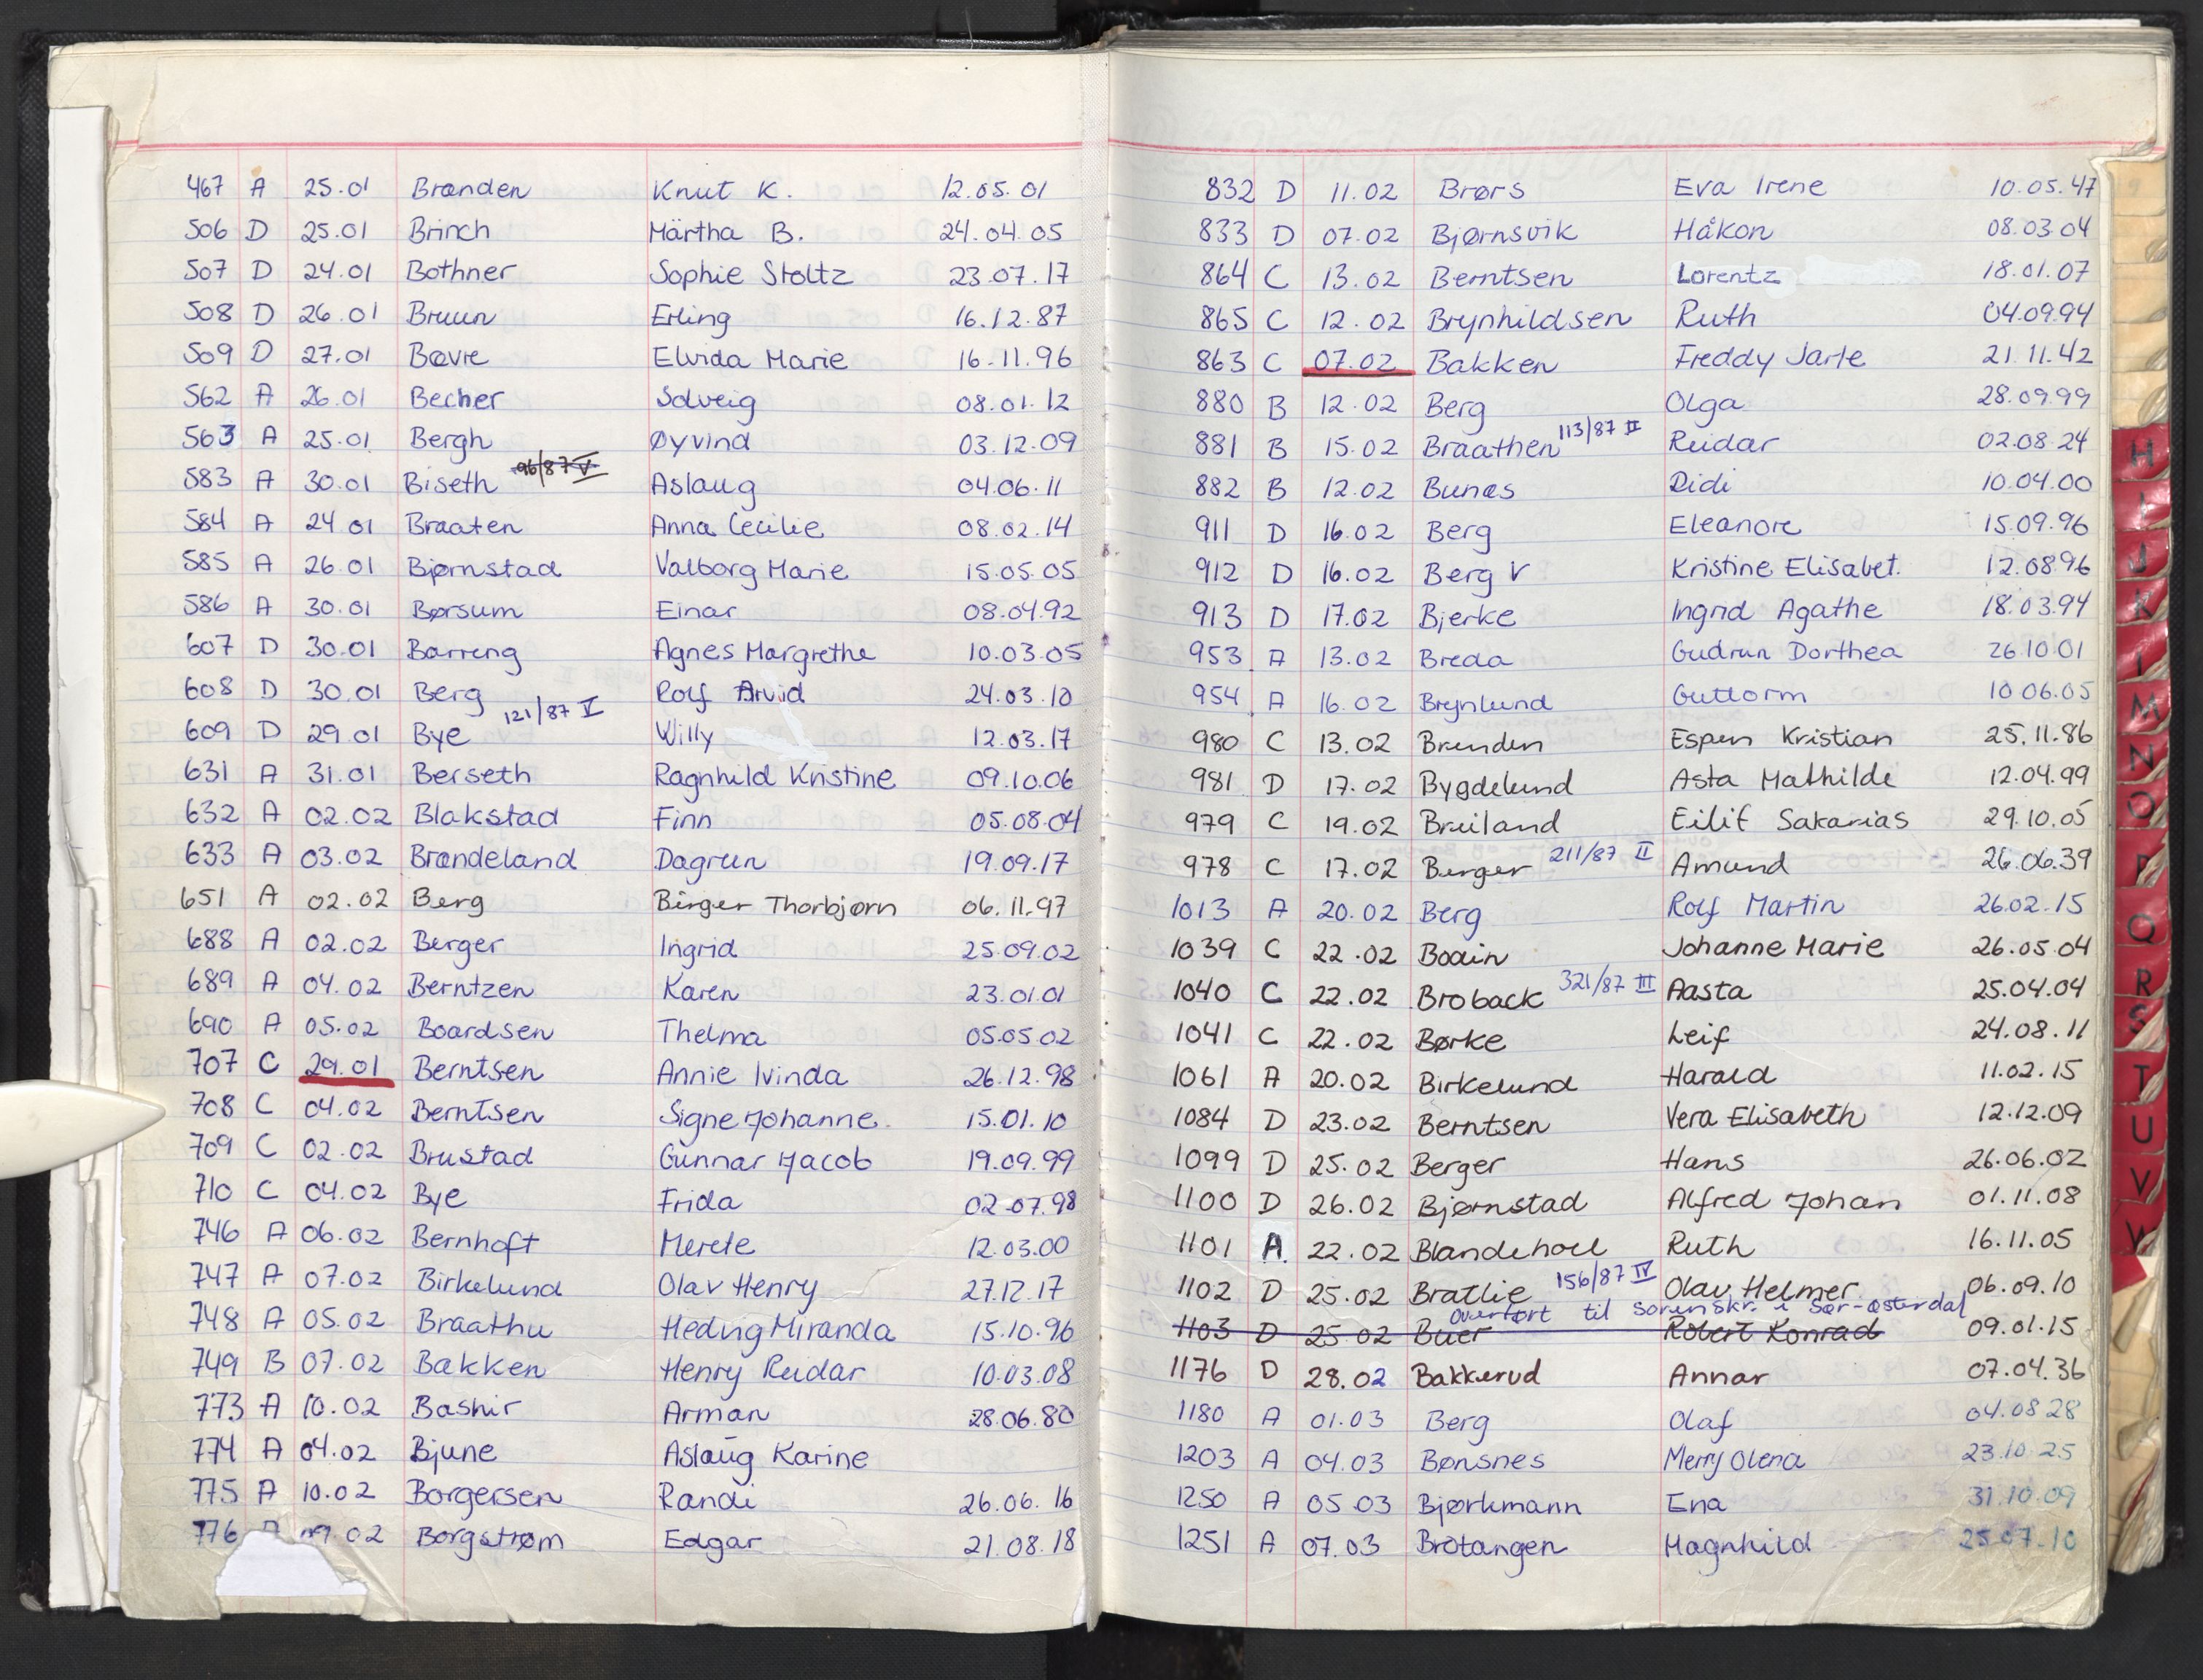 467 A 25.01 Brænden Knut K. 12.05.01
506 D 25.01 Brinch Märtha B. 24.04.05
507 D 24.01 Bothner Sophie Stoltz 23.07.17
508 D 26.01 Bruun Erling 16.12.87
509 D 27.01 Bøvre Elvida Marie 16.11.96
562 A 26.01 Becher Solveig 08.01.12
563 A 25.01 Bergh Øyvind 03.12.09
583 A 30.01 Biseth 96/87 V Aslaug 04.06.11
584 A 24.01 Braaten Anna Cecilie 08.02.14
585 A 26.01 Bjørnstad Valborg Marie 15.05.05
586 A 30.01 Børsum Einar 08.04.92
607 D 30.01 Barreng Agnes Margrethe 10.03.05
608 D 30.01 Berg Rolf Arvid 24.03.10
609 D 29.01 Bye 121/87 V Willy 12.03.17
631 A 31.01 Berseth Ragnhild Kristine 09.10.06
632 A 02.02 Blakstad Finn 05.08.04
633 A 03.02 Brændeland Dagrun 19.09.17
651 A 02.02 Berg Birger Thorbjørn 06.11.97
688 A 02.02 Berger Ingrid 25.09.02
689 A 04.02 Berntzen Karen 23.01.01
690 A 05.02 Boardsen Thelma 05.05.02
707 C 29.01 Berntsen Annie Ivinda 26.12.98
708 C 04.02 Berntsen Signe Johanne 15.01.10
709 C 02.02 Brustad Gunnar Jacob 19.09.99
710 C 04.02 Bye Frida 02.07.98
746 A 06.02 Bernhoft Merete 12.03.00
747 A 07.02 Birkelund Olav Henry 27.12.17
748 A 05.02 Braathu Hedvig Miranda 15.10.96
749 B 07.02 Bakken Henry Reidar 10.03.08
773 A 10.02 Bashir Arman 28.06.80
774 A 04.02 Bjune Aslaug Karine
775 A 10.02 Borgersen Randi 26.06.16
776 09.02 Borgstrøm Edgar 21.08.18
832 D 11.02 Brørs Eva Irene 10.05.47
833 D 07.02 Bjørnsvik Håkon 08.03.04
864 C 13.02 Berntsen Lorentz 18.01.07
865 C 12.02 Brynhildsen Ruth 04.09.94
863 C 07.02 Bakken Freddy Jarle 21.11.42
880 B 12.02 Berg Olga 28.09.99
881 B 15.02 Braathen 113/87 II Reidar 02.08.24
882 B 12.02 Bunæs Didi 10.04.00
911 D 16.02 Berg Eleanore 15.09.96
912 D 16.02 Berg V Kristine Elisabet. 12.08.96
913 D 17.02 Bjerke Ingrid Agathe 18.03.94
953 A 13.02 Breda Gudrun Dorthea 26.10.01
954 A 16.02 Brynlund Guttorm 10.06.05
980 C 13.02 Brenden Espen Kristian 25.11.86
981 D 17.02 Bygdelund Asta Mathilde 12.04.99
979 C 19.02 Breiland Eilif Sakarias 29.10.05
978 C 17.02 Berger 211/87 II Amund 26.06.39
1013 A 20.02 Berg Rolf Martin 26.02.15
1039 C 22.02 Boain Johanne Marie 26.05.04
1040 C 22.02 Broback 321/87 III Aasta 25.04.04
1041 C 22.02 Børke Leif 24.08.11
1061 A 20.02 Birkelund Harald 11.02.15
1084 D 23.02 Berntsen Vera Elisabeth 12.12.09
1099 D 25.02 Berger Hans 26.06.02
1100 D 26.02 Bjørnstad Alfred Johan 01.11.08
1101 A 22.02 Blandehoel Ruth 16.11.05
1102 D 25.02 Bratlie 156/87 IV Olav Helmer 06.09.10
overført til sorenskr. i Sør-østerdal
1103 D 25.02 Buer Robert Konrad 09.01.15
1176 D 28.02 Bakkerud Annar 07.04.36
1180 A 01.03 Berg Olaf 04.08.28
1203 A 04.03 Bønsnes Merry Olena 23.10.25
1250 A 05.03 Bjørkmann Ena 31.10.09
1251 A 07.03 Brotangen Magnhild 25.07.10
H
I
J
K
M
N
O
P
Q
R
S
T
U
V